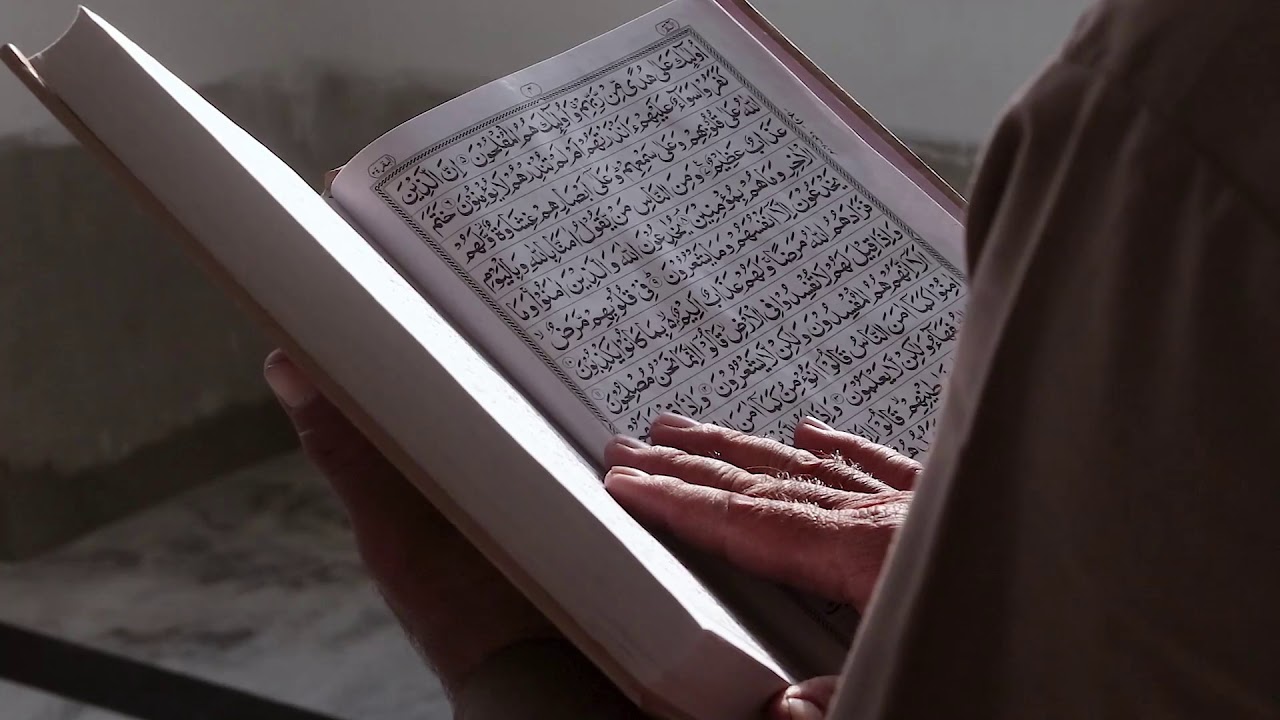 البقرة
٣
اُولٰٓئِكَ عَلٰى هُدًى مِّنْ رَّبِّهِمْ وَاُولٰٓئِكَ هُمُ الْمُفْلِحُوْنَ ۝٥ اِنَّ الَّذِيْنَ
كَفَرُوْا سَوَآءٌ عَلَيْهِمْ ءَاَنْذَرْتَهُمْ اَمْ لَمْ تُنْذِرْهُمْ لَا يُؤْمِنُوْنَ ۝٦ خَتَمَ
اللّٰهُ عَلٰى قُلُوْبِهِمْ وَعَلٰى سَمْعِهِمْ وَعَلٰٓى اَبْصَارِهِمْ غِشَاوَةٌ وَّلَهُمْ
عَذَابٌ عَظِيْمٌ ۝٧ وَمِنَ النَّاسِ مَنْ يَّقُوْلُ اٰمَنَّا بِاللّٰهِ وَبِالْيَوْمِ
الْاٰخِرِ وَمَا هُمْ بِمُؤْمِنِيْنَ ۝٨ يُخٰدِعُوْنَ اللّٰهَ وَالَّذِيْنَ اٰمَنُوْا وَمَا
يَخْدَعُوْنَ اِلَّآ اَنْفُسَهُمْ وَمَا يَشْعُرُوْنَ ۝٩ فِيْ قُلُوْبِهِمْ مَّرَضٌ
فَزَادَهُمُ اللّٰهُ مَرَضًا وَلَهُمْ عَذَابٌ اَلِيْمٌ بِمَا كَانُوْا يَكْذِبُوْنَ ۝١٠
وَاِذَا قِيْلَ لَهُمْ لَا تُفْسِدُوْا فِى الْاَرْضِ قَالُوْٓا اِنَّمَا نَحْنُ مُصْلِحُوْنَ ۝١١
اَلَآ اِنَّهُمْ هُمُ الْمُفْسِدُوْنَ وَلٰكِنْ لَّا يَشْعُرُوْنَ ۝١٢ وَاِذَا
اٰمِنُوْا كَمَآ اٰمَنَ النَّاسُ قَالُوْٓا اَنُؤْمِنُ كَمَآ اٰمَنَ
وَلٰكِنْ لَّا يَعْلَمُوْنَ ۝١٣ وَاِذَا
قَالُوْٓا